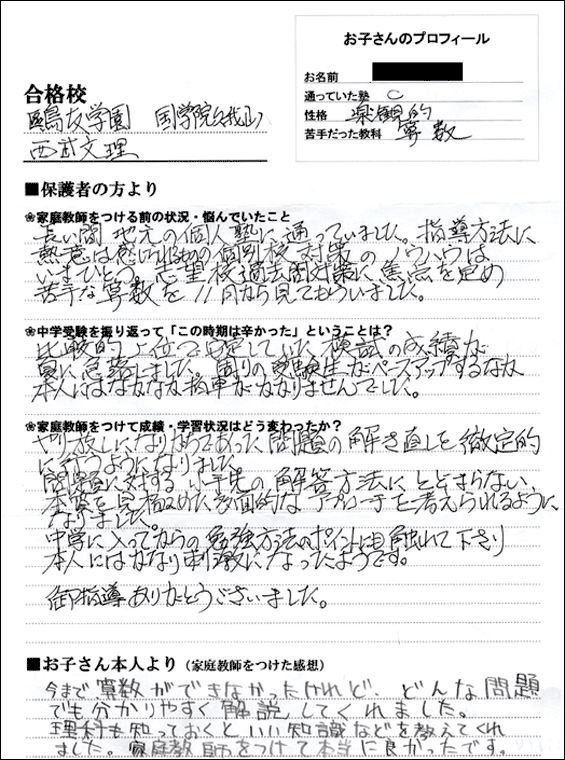 お子さんのプロフィール
お名前
通っていた塾 C
性格 楽観的
苦手だった教科 算数
合格校
鷗友学園 国学院久我山
西武文理
■保護者の方より
❀家庭教師をつける前の状況・悩んでいたこと
長い間 地元の個人塾に通っていました。指導方法に
熱意は感じれるものの個別校対策のノウハウは
いまひとつ。志望校過去問対策に焦点を定め
苦手な算数を11月から見てもらいました。
❀中学受験を振り返って「この時期は辛かった」ということは?
比較的上位で安定していた模試の成績が
夏に急落しました。周りの受験生がペースアップするなか
本人にはなかなか拍車がかかりませんでした。
❀家庭教師をつけて成績・学習状況はどう変わったか?
やり放しになりがちであった問題の解き直しを徹定的
に行うようになりました。
問題に対する小手先の解答方法にとどまらない、
本質を見極めた多面的なアプローチを考えられるように
なりました。
中学に入ってからの勉強方法のポイントにも触れて下さり
本人にはかなり刺激になったようです。
御指導ありがとうございました。
■お子さん本人より(家庭教師をつけた感想)
今まで算数ができなかったけれど、どんな問題
でも分かりやすく解説してくれました。
理科も知っておくといい知識などを教えてくれ
ました。家庭教師をつけて本当に良かったです。